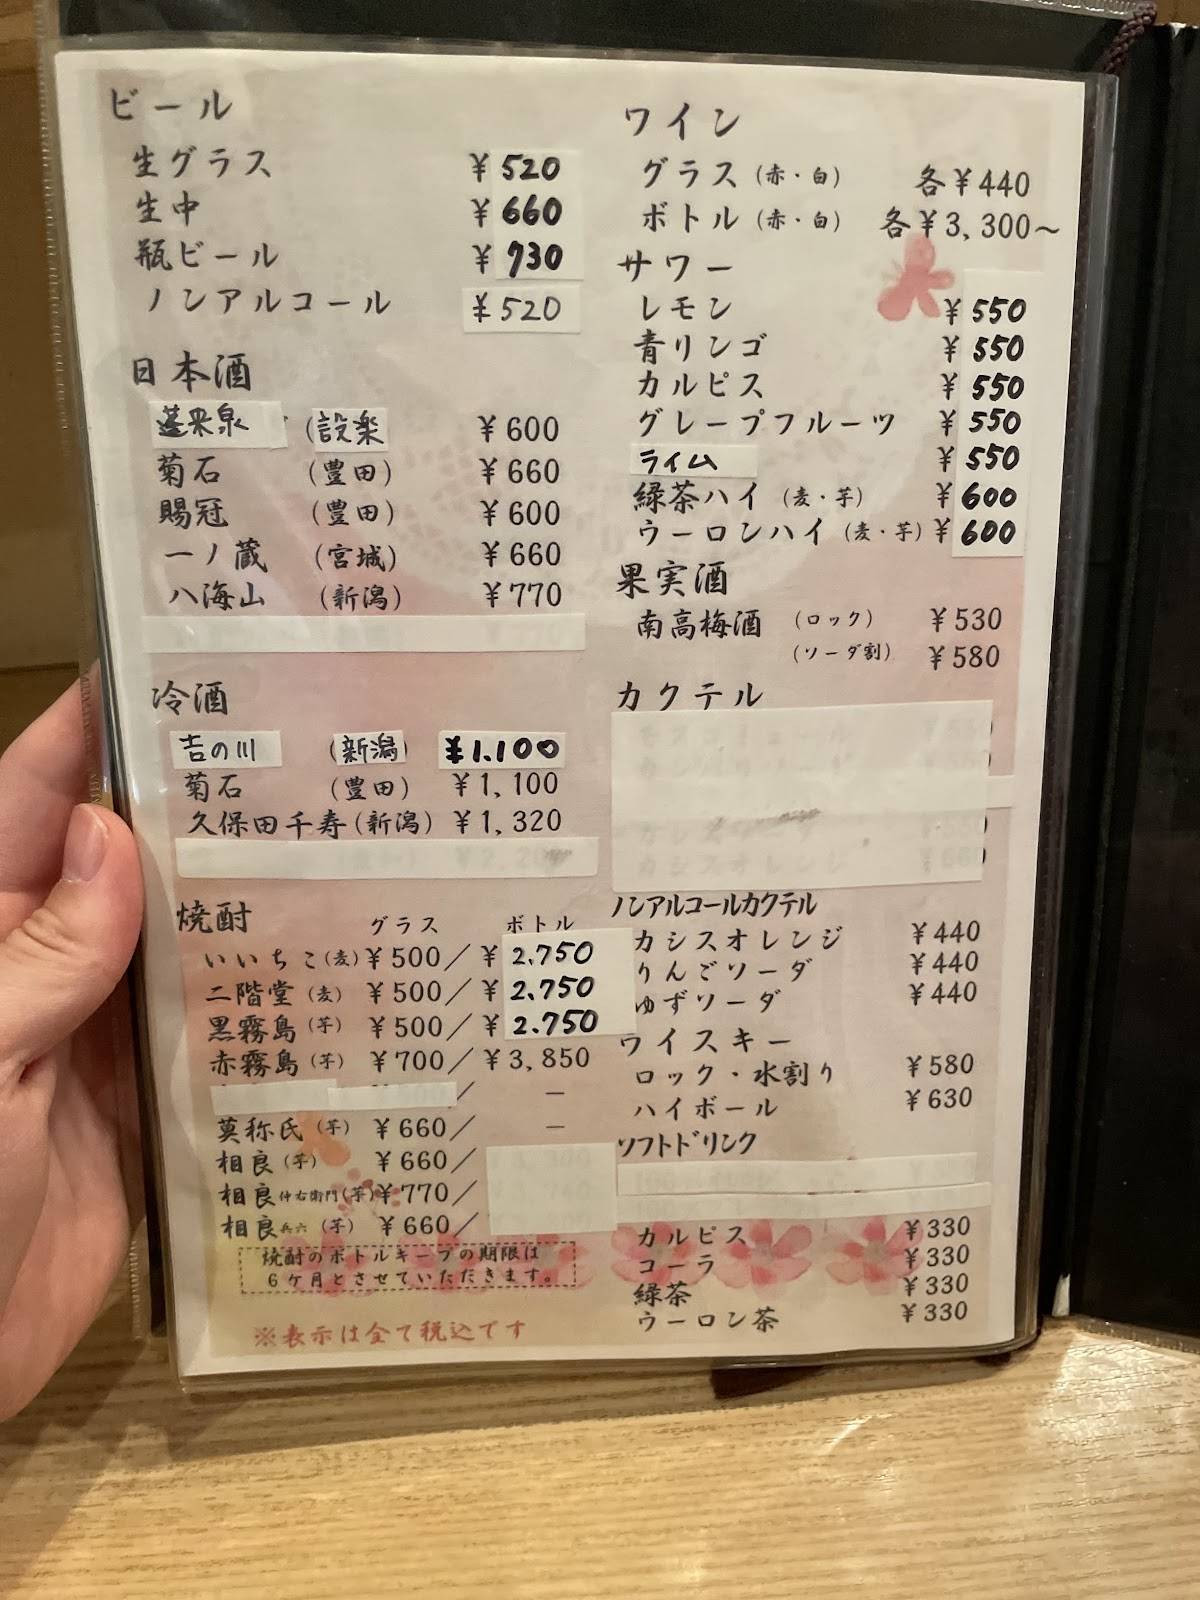 ビール
生グラス ¥520
生中 ¥660
瓶ビール ¥730
ノンアルコール ¥520
日本酒
蓬来泉 (設楽 ¥600
菊石 (豊田) ¥660
賜冠 (豊田) ¥600
一ノ蔵 (宮城) ¥660
八海山 (新潟) ¥770
冷酒
吉の川 (新潟) ¥1.100
菊石 (豊田) ¥1,100
久保田千寿(新潟) ¥1,320
焼酎 グラス ボトル
いいちこ(麦)¥500／¥2.750
二階堂(麦) ¥500／¥2.750
黒霧島(芋) ¥500／¥2.750
赤霧島(芋) ¥700／¥3,850
／ －
莫称氏(芋) ¥660／ －
相良(芋) ¥660／
相良仲右衛門(芋)¥770／
相良兵六(芋) ¥660／
焼酎のボトルキープの期限は
6ケ月とさせていただきます。
※表示は全て税込です
ワイン
グラス(赤・白) 各¥440
ボトル(赤・白) 各¥3,300～
サワー
レモン ¥550
青リンゴ ¥550
カルピス ¥550
グレープフルーツ ¥550
ライム ¥550
緑茶ハイ(麦・芋) ¥600
ウーロンハイ(麦・芋) ¥600
果実酒
南高梅酒 (ロック) ¥530
(ソーダ割) ¥580
カクテル
ノンアルコールカクテル
カシスオレンジ ¥440
りんごソーダ ¥440
ゆずソーダ ¥440
ウイスキー
ロック・水割り ¥580
ハイボール ¥630
ソフトドリンク
カルピス ¥330
コーラ ¥330
緑茶 ¥330
ウーロン茶 ¥330